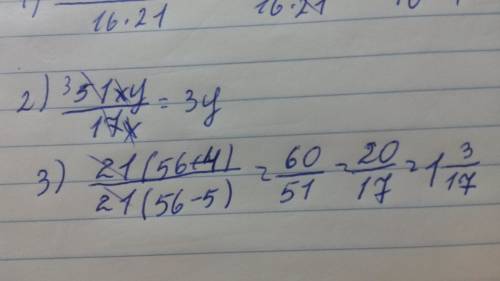 1) 16·21 16·21
2) 3 51xy/17x = 3y
3) 21(56+4)/21(56-5) = 60/51 = 20/17 = 1 3/17